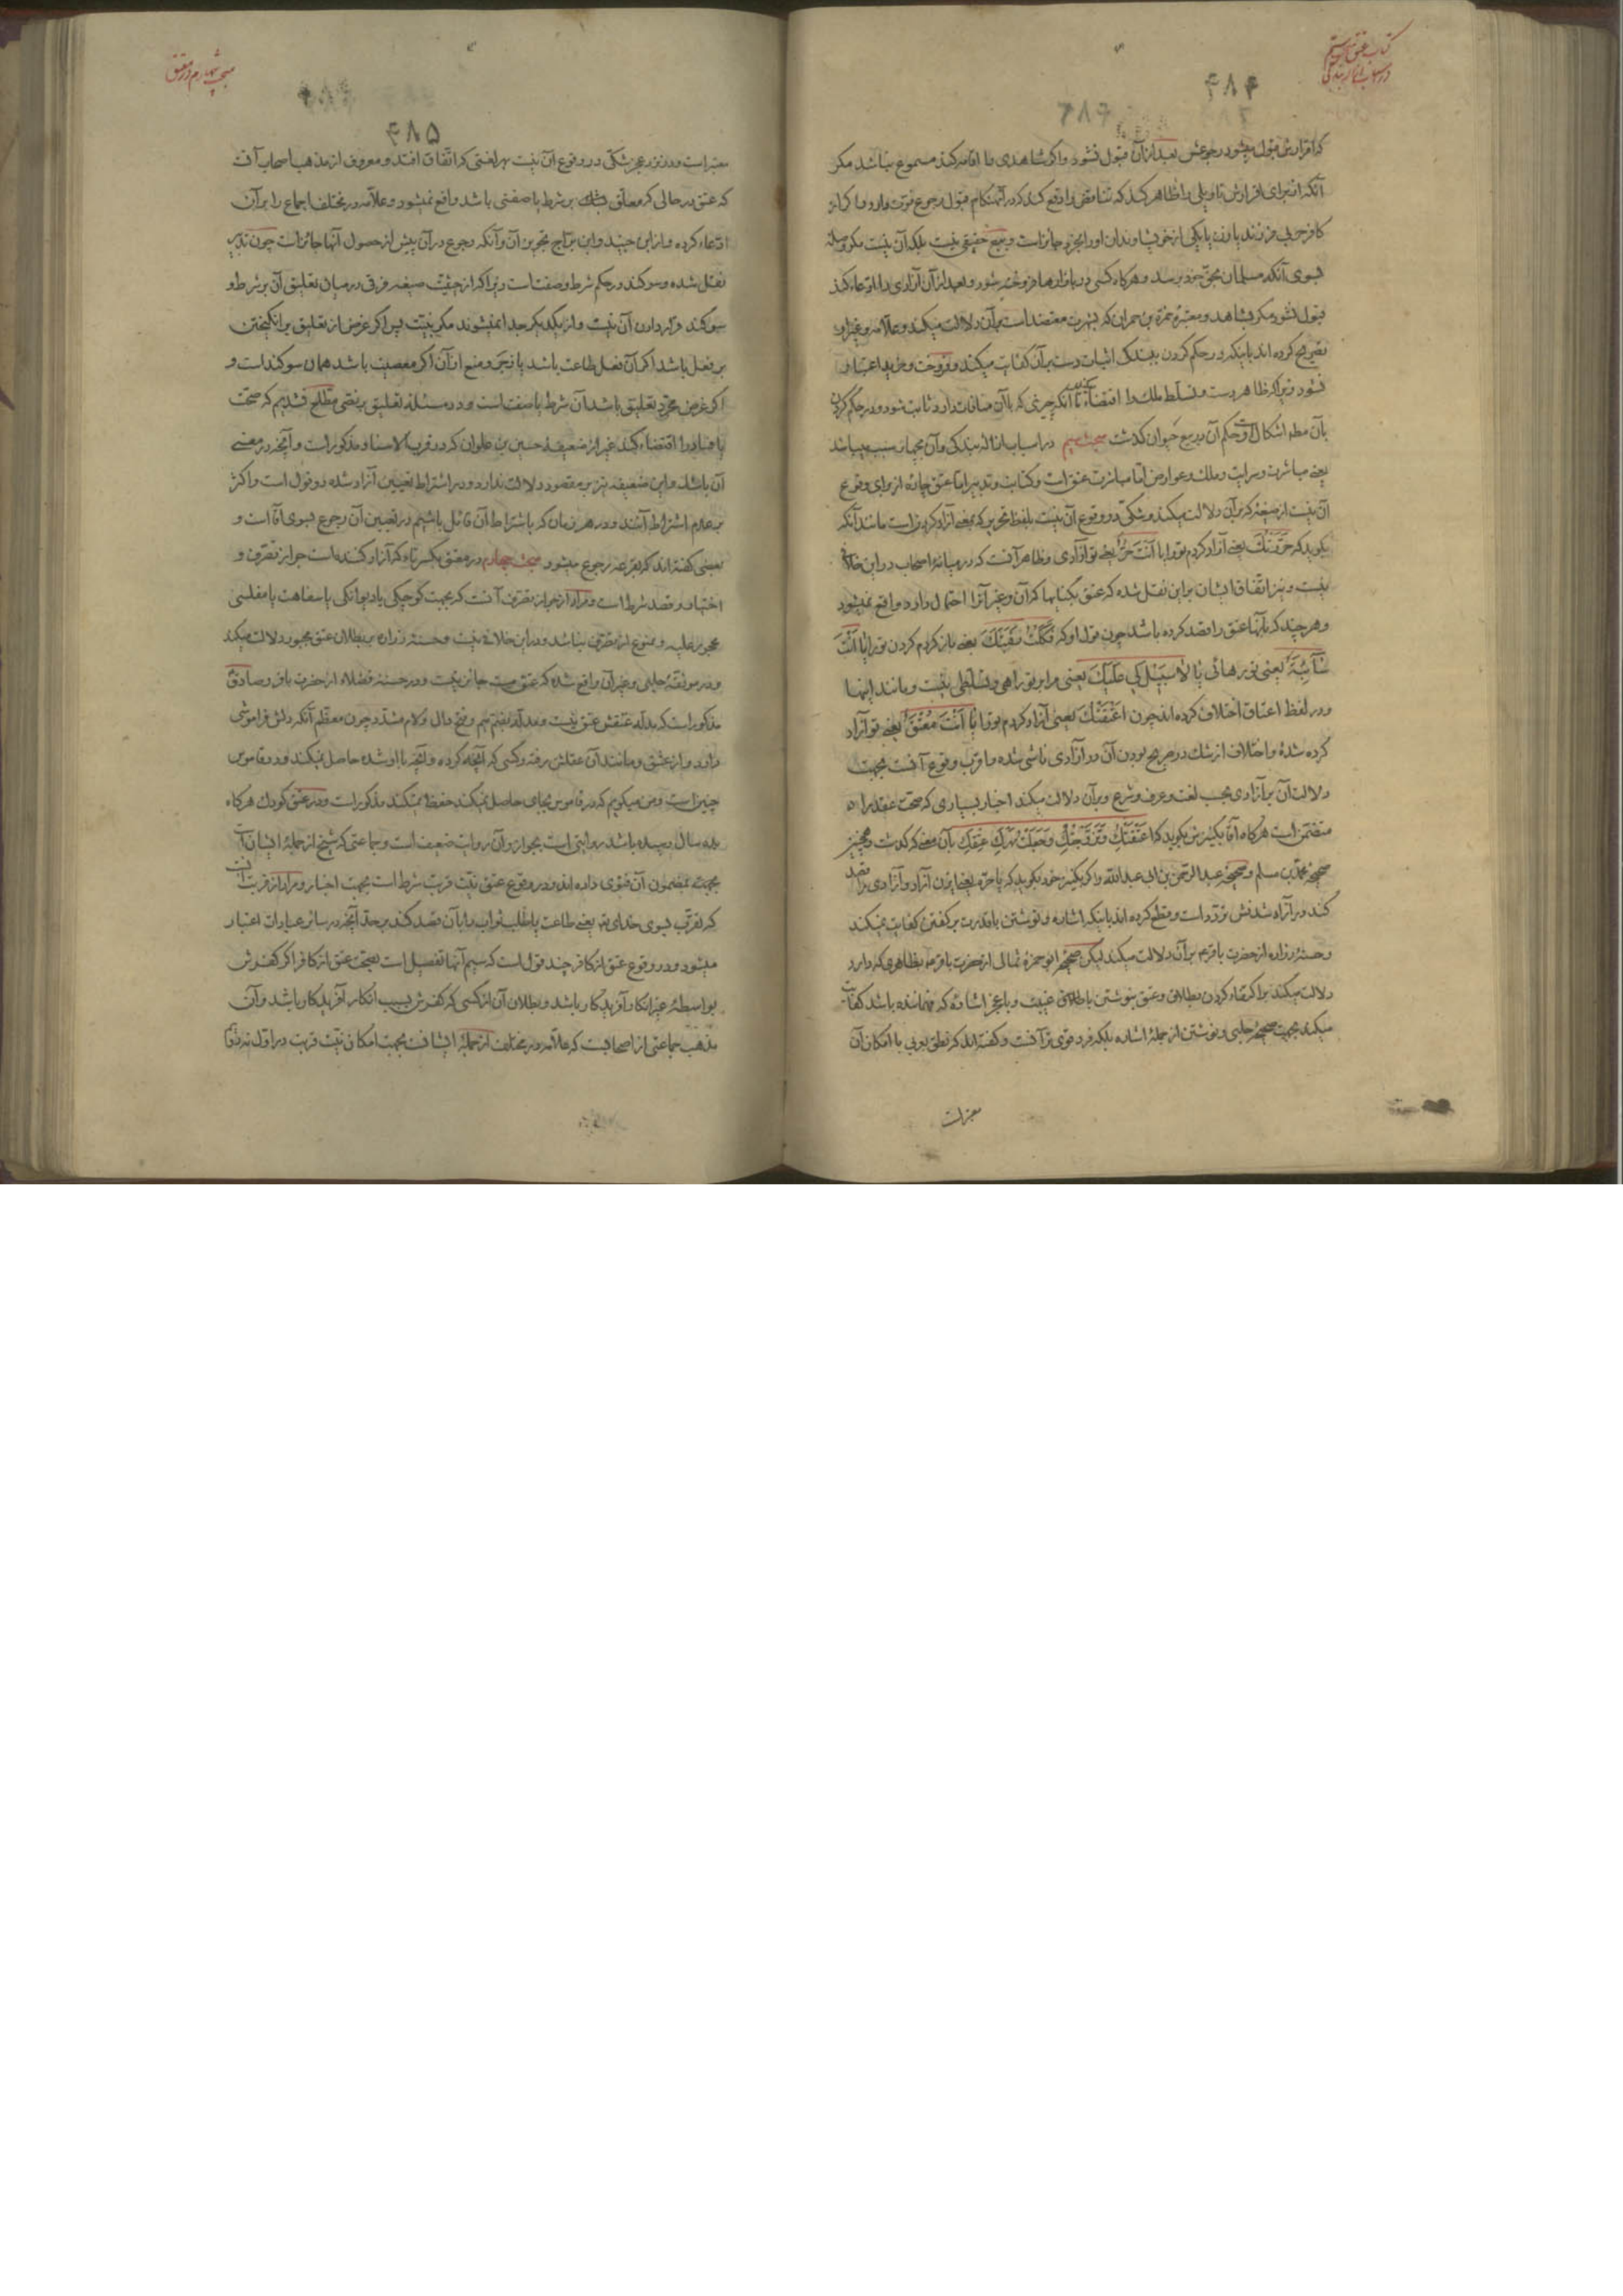 کتاب عتق
۴۸۴
که اقرارش قبول میشود رجوعش بعد از آن قبول نشود و اگر شاهدی اقامه کند مسموع نباشد مکر
آنکه از برای اقرارش تاویلی را ظاهر کند که تناقض را دفع کند که در آنهنکام قبول رجوع قوت دارد و اکر از
کافر حربی فرزند یا زن یا یکی از خویشاوندان او را بخرد جایز است و بیع حقیقی نیست بلکه آن نیست مکر وسیله
بسوی آنکه مسلمان بحق خود برسد و هرکاه کسی در بازارها فروخته شود و بعد از آن آزادی را ادعاء کند
قبول نشود مکر بشاهد و معتبره حمزة بن حمران که بشهرت معتضد است بر آن دلالت میکند و علامه و غیر او
تصریح کرده اند باینکه در حکم کردن ببندکی اثبات دست بر آن کفایت میکند و فروخت و خرید اعتبار
نشود زیرا که ظاهر دست و تسلط ملک را اقتضاء میکند تا آنکه چیزی که با آن منافات دارد ثابت شود و در حکم کردن
بآن مطلقا اشکال است و حکم آن در بیع حیوان کذشت مبحث سیم در اسباب ازاله بندکی و آن بچهار سبب میباشد
یعنی مباشرت و سرایت و ملک و عوارض اما مباشرت عتق است و کتابت و تدبیر اما عتق چاره از برای وقوع
آن نیست از صیغه که بر آن دلالت میکند و شکی در وقوع آن نیست بلفظ تحریر که بمعنی آزاد کردن است مانند آنکه
بکوید که حَرَّرْتُكَ یعنی آزاد کردم تو را یا أَنْتَ حُرٌّ یعنی تو آزادی و ظاهر آنست که در میانه اصحاب در این خلاف
نیست و نیز اتفاق ایشان بر این نقل شده که عتق بکنایها که آن و غیر آنرا احتمال دارد واقع نمیشود
و هر چند که بآنها عتق را قصد کرده باشد چون قول او که فَكَكْتُ رَقَبَتَكَ یعنی باز کردم کردن تو را یا أَنْتَ
سَائِبَةٌ یعنی تو رهائی یا لا سَبِيلَ لِي عَلَيْكَ یعنی مرا بر تو راهی و تسلطی نیست و مانند اینها
و در لفظ اعتاق اختلاف کرده اند چون أَعْتَقْتُكَ یعنی آزاد کردم تو را یا أَنْتَ مُعْتَقٌ یعنی تو آزاد
کرده شدهٔ و اختلاف از شک در صریح بودن آن در آزادی ناشی شده و اقرب وقوع آنست بجهت
دلالت آن بر آزادی بحسب لغت و عرف و شرع و بر آن دلالت میکند اخبار بسیاری که صحت عقد را
متضمن است هرکاه آقا بکنیزش بکوید که أَعْتَقْتُكِ وَتَزَوَّجْتُكِ وَجَعَلْتُ مَهْرَكِ عِتْقَكِ بآن معنی که کذشت و همچنین
صحیحه محمد بن مسلم و صحیحه عبد الرحمن بن ابی عبد الله و اکر بکنیز خود بکوید که یا حره یعنی ای زن آزاد و آزادی را قصد
کند در آزاد شدنش تردد است و قطع کرده اند باینکه اشاره و نوشتن با قدرت بر کفتن کفایت نمیکند
و حسنه زراره از حضرت باقر ع بر آن دلالت میکند لیکن صحیحه ابو حمزه ثمالی از حضرت باقر ع بظاهری که دارد
دلالت میکند بر اکتفاء کردن بطلاق و عتق بنوشتن با طلاق غیبت و با عجز اشاره که فهمانده باشد کفایت
میکند بجهت صحیحه حلبی و نوشتن از جمله اشاره بلکه فرد قوی تر آنست و کفته اند که نطق بعربی با امکان آن
معتبر است
مبحث چهارم در معتق
۴۸۵
معتبر است و در نزد عجز شکی در وقوع آن نیست بهر لغتی که اتفاق افتد و معروف از مذهب اصحاب آنست
که عتق در حالی که معلق بر شرط یا صفتی باشد واقع نمیشود و علامه در مختلف اجماع را بر آن
ادعاء کرده و از ابن جنید و ابن براج تجویز آن و آنکه رجوع در آن پیش از حصول آنها جایز است چون تدبیر
نقل شده و سوکند در حکم شرط و صفت است زیرا که از حیثیت صیغه فرقی در میان تعلیق آن بر شرط و
سوکند قرار دادن آن نیست و از یکدیکر جدا نمیشوند مکر بنیت پس اکر غرض از تعلیق برانکیختن
بر فعل باشد اکر آن فعل طاعت باشد یا زجر و منع از آن اکر معصیت باشد همان سوکند است و
اکر غرض مجرد تعلیق باشد آن شرط یا صفت است و در مسئله تعلیق بر نصی مطلع نشدیم که صحت
یا فساد را اقتضاء کند غیر از ضعیفه حسین بن علوان که در قرب الاسناد مذکور است و آنچه در معنی
آن باشد و این ضعیفه نیز بر مقصود دلالت ندارد و در اشتراط تعیین آزاد شده دو قول است و اکثر
بر عدم اشتراط آنند و در هر زمان که باشتراط آن قائل باشیم در تعیین آن رجوع بسوی آقا است و
بعضی کفته اند که بقرعه رجوع میشود مبحث چهارم در معتق بکسر تاء که آزاد کننده است جواز تصرف و
اختیار و قصد شرط است و مراد از جواز تصرف آنست که بجهت کوچکی یا دیوانکی یا سفاهت یا مفلسی
محجور علیه و ممنوع از تصرف نباشد و در این خلافی نیست و حسنه زراره بر بطلان عتق مجبور دلالت میکند
و در موثقه حلبی و غیر آن واقع شده که عتق مست جایز نیست و در حسنه فضلاء از حضرت باقر و صادق ع
مذکور است که مدله عتقش عتق نیست و مدله بضم میم و فتح دال و لام مشدد چون معظم آنکه دلش فراموشی
دارد و از عشق و مانند آن عقلش رفته و کسی که آنچه کرده و آنچه با او شده حاصل نمیکند و در قاموس
چنین است و من میکویم که در قاموس بجای حاصل نمیکند حفظ نمیکند مذکور است و در عتق کودک هرکاه
بده سال رسیده باشد روایتی است بجواز و آن روایت ضعیف است و جماعتی که شیخ از جمله ایشان است
بمضمون آن فتوی داده اند و در وقوع عتق نیت قربت شرط است بجهت اخبار و مراد از قربت آنست
که تقرب بسوی خدای تع یعنی طاعت یا طلب ثواب را بآن قصد کند بر حد آنچه در سائر عبادات اعتبار
میشود و در وقوع عتق از کافر چند قول است که سیم آنها تفصیل است بصحت عتق از کافر اکر کفرش
بواسطه غیر انکار آفریدکار باشد و بطلان آن از کسی که کفرش بسبب انکار آفریدکار باشد و آن
مذهب جماعتی از اصحابست که علامه در مختلف از جمله ایشانست بجهت امکان نیت قربت در اول نه در ثانی